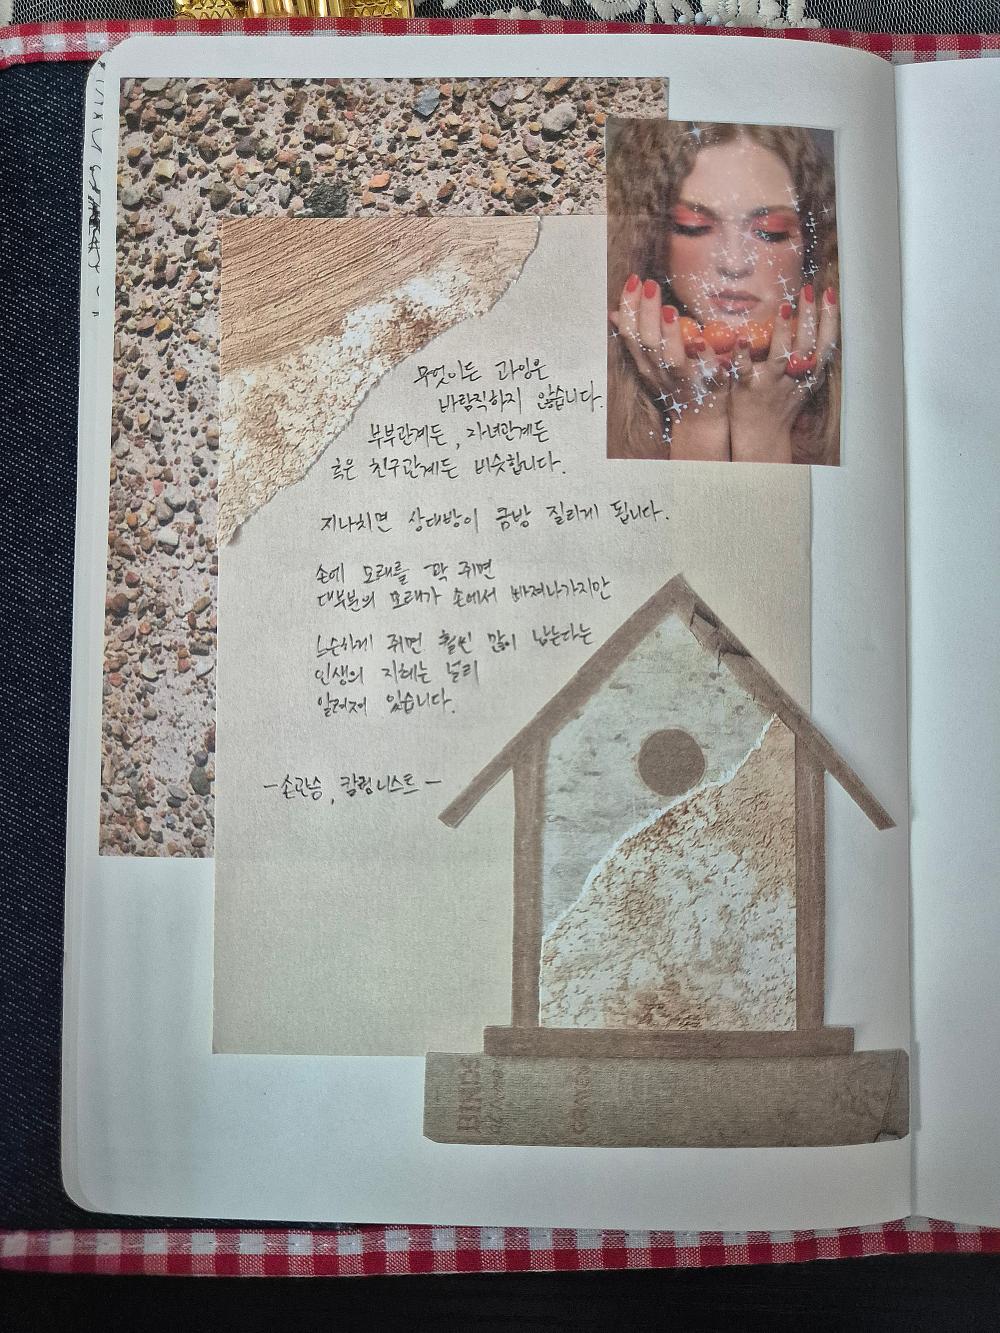 무엇이든 과잉은
바람직하지 않습니다.
부부관계든, 자녀관계든
혹은 친구관계든 비슷합니다.
지나치면 상대방이 금방 질리게 됩니다.
손에 모래를 꽉 쥐면
대부분의 모래가 손에서 빠져나가지만
느슨하게 쥐면 훨씬 많이 남는다는
인생의 지혜는 널리
알려져 있습니다.
-손관승, 칼럼니스트-